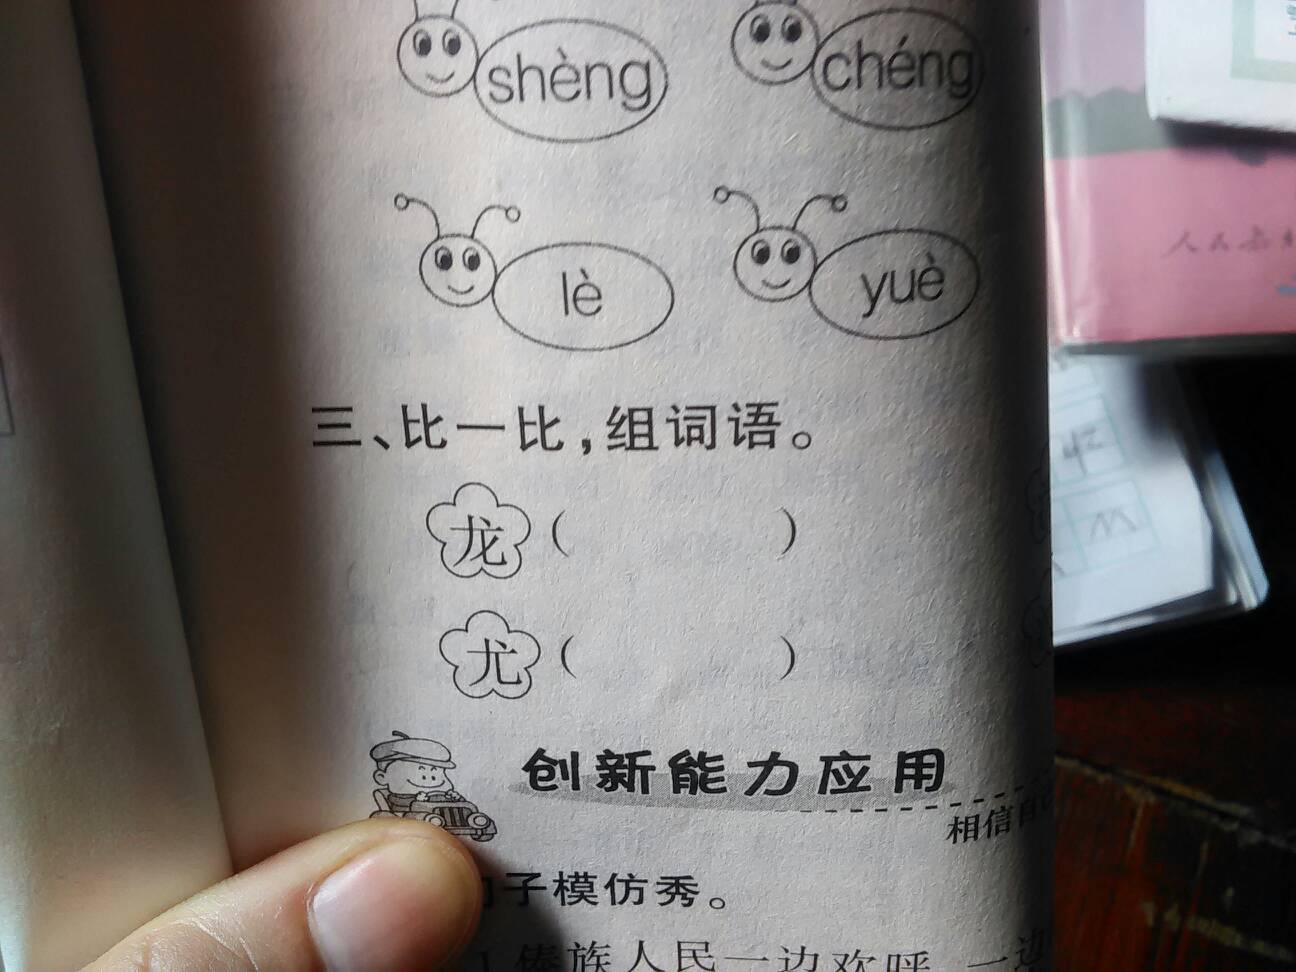 shèng chéng
lè yuè
三、比一比,组词语。
龙( )
尤( )
创新能力应用
相信自
子模仿秀。
1.傣族人民一边欢呼,一边